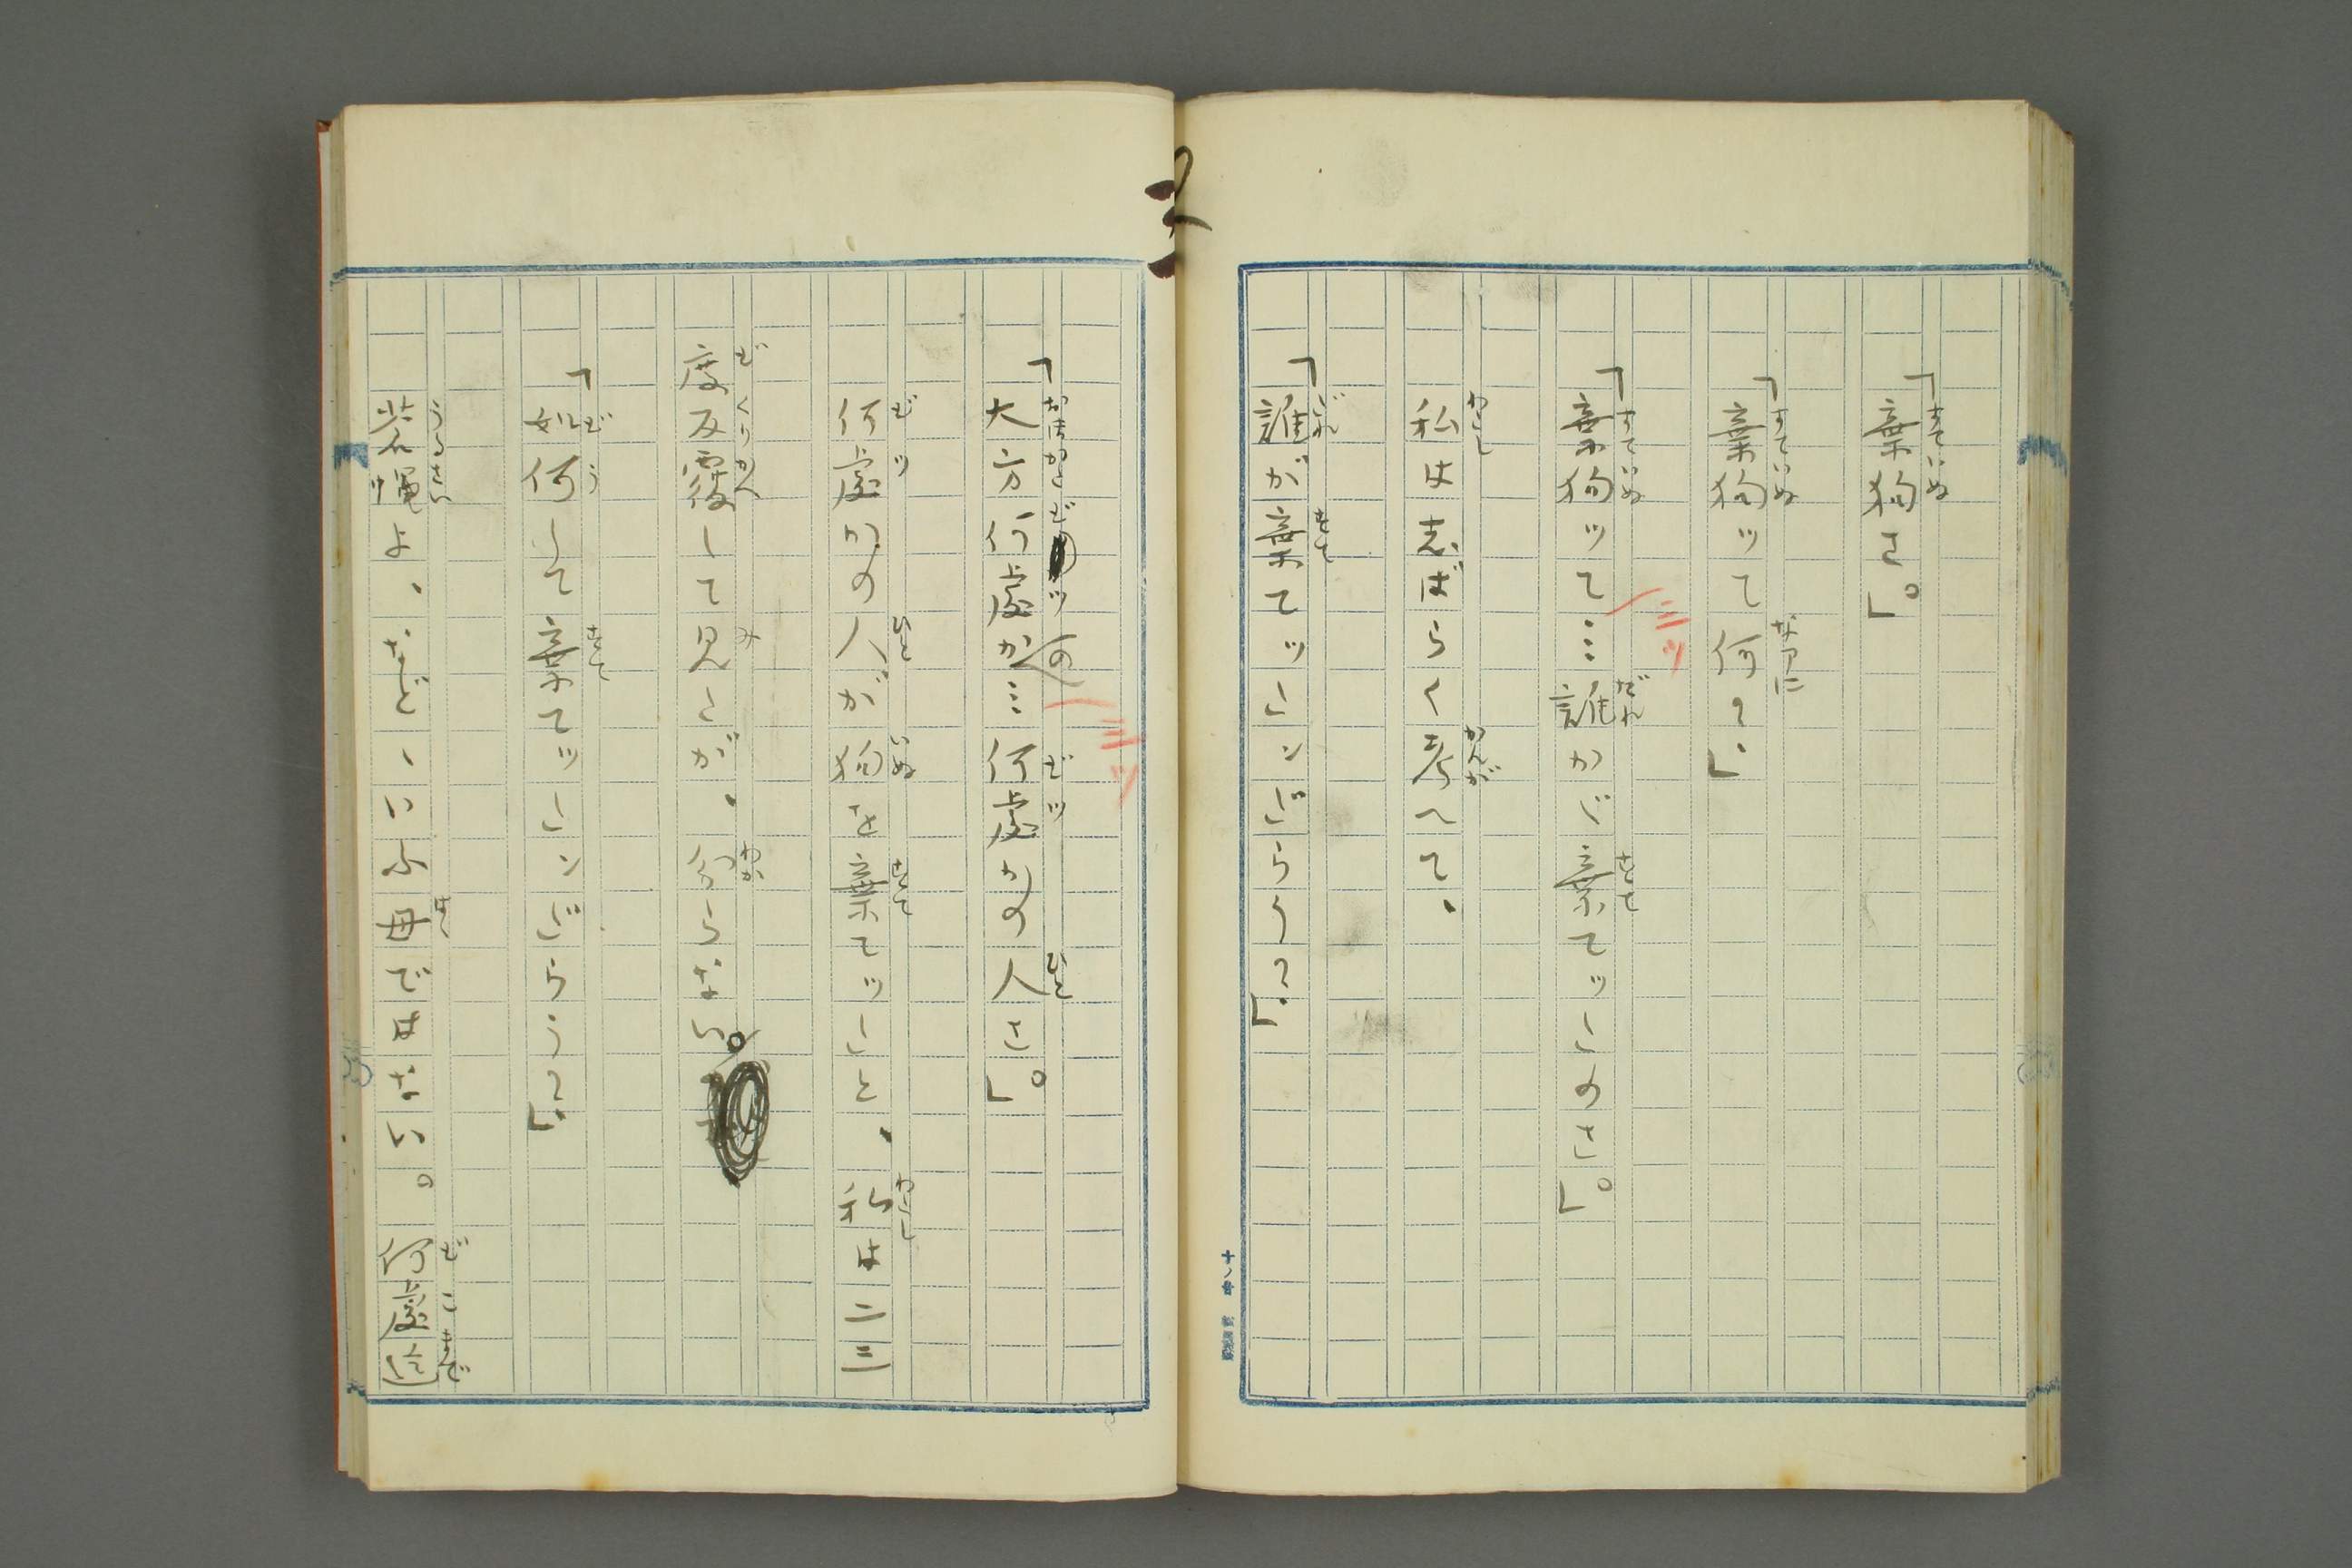 「棄狗さ。」
「棄狗ッて何？」
「棄狗ッて…誰かゞ棄てッたのさ。」
私は志ばらく考へて、
「誰が棄てッたンだらう？」
「大方何處かの…何處かの人さ。」
何處かの人が狗を棄てッたと、私は二三
度反覆して見たが、分らない。
「如何して棄てッたンだらう？」
煩いよ、などゝいふ母ではない。何處迄